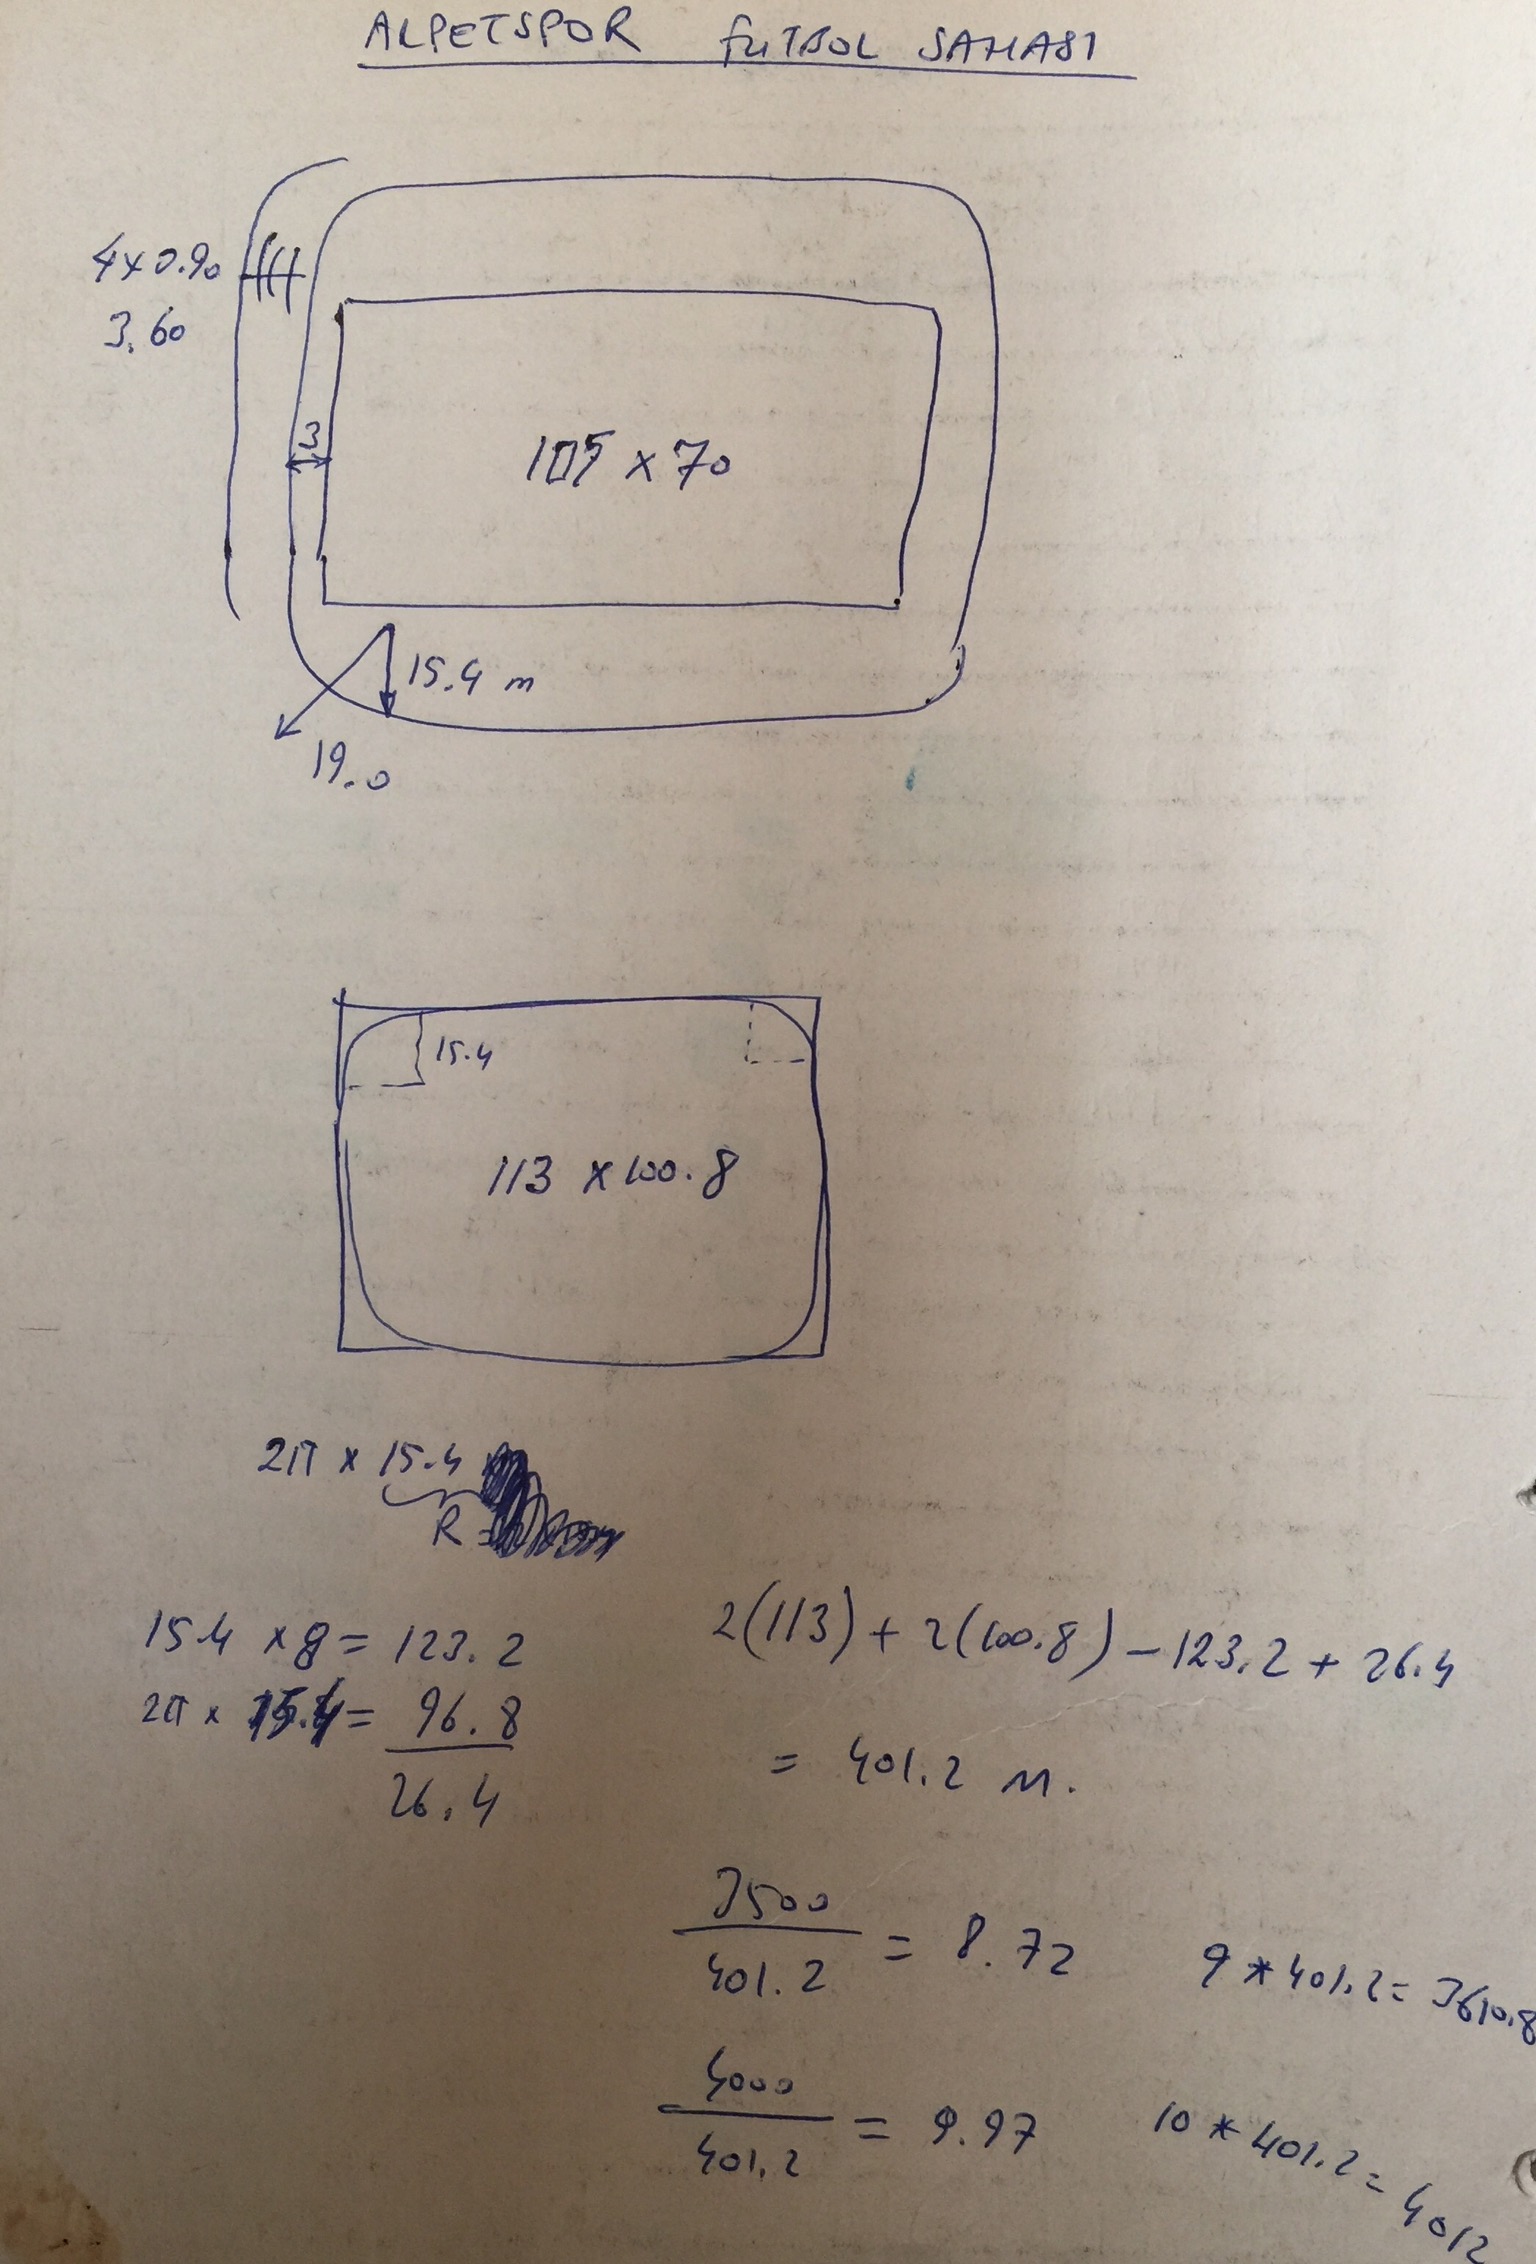 ALPETSPOR FUTBOL SAHASI
4x0.90
3.60
3
105 x 70
15.4 m
19.0
15.4
113 x 100.8
2π x 15.4
R =
15.4 x 8 = 123.2
2π x 15.4 = 96.8
26.4
2(113) + 2(100.8) - 123.2 + 26.4
= 401.2 m.
3500
401.2
= 8.72
9 * 401.2 = 3610.8
4000
401.2
= 9.97
10 * 401.2 = 4012